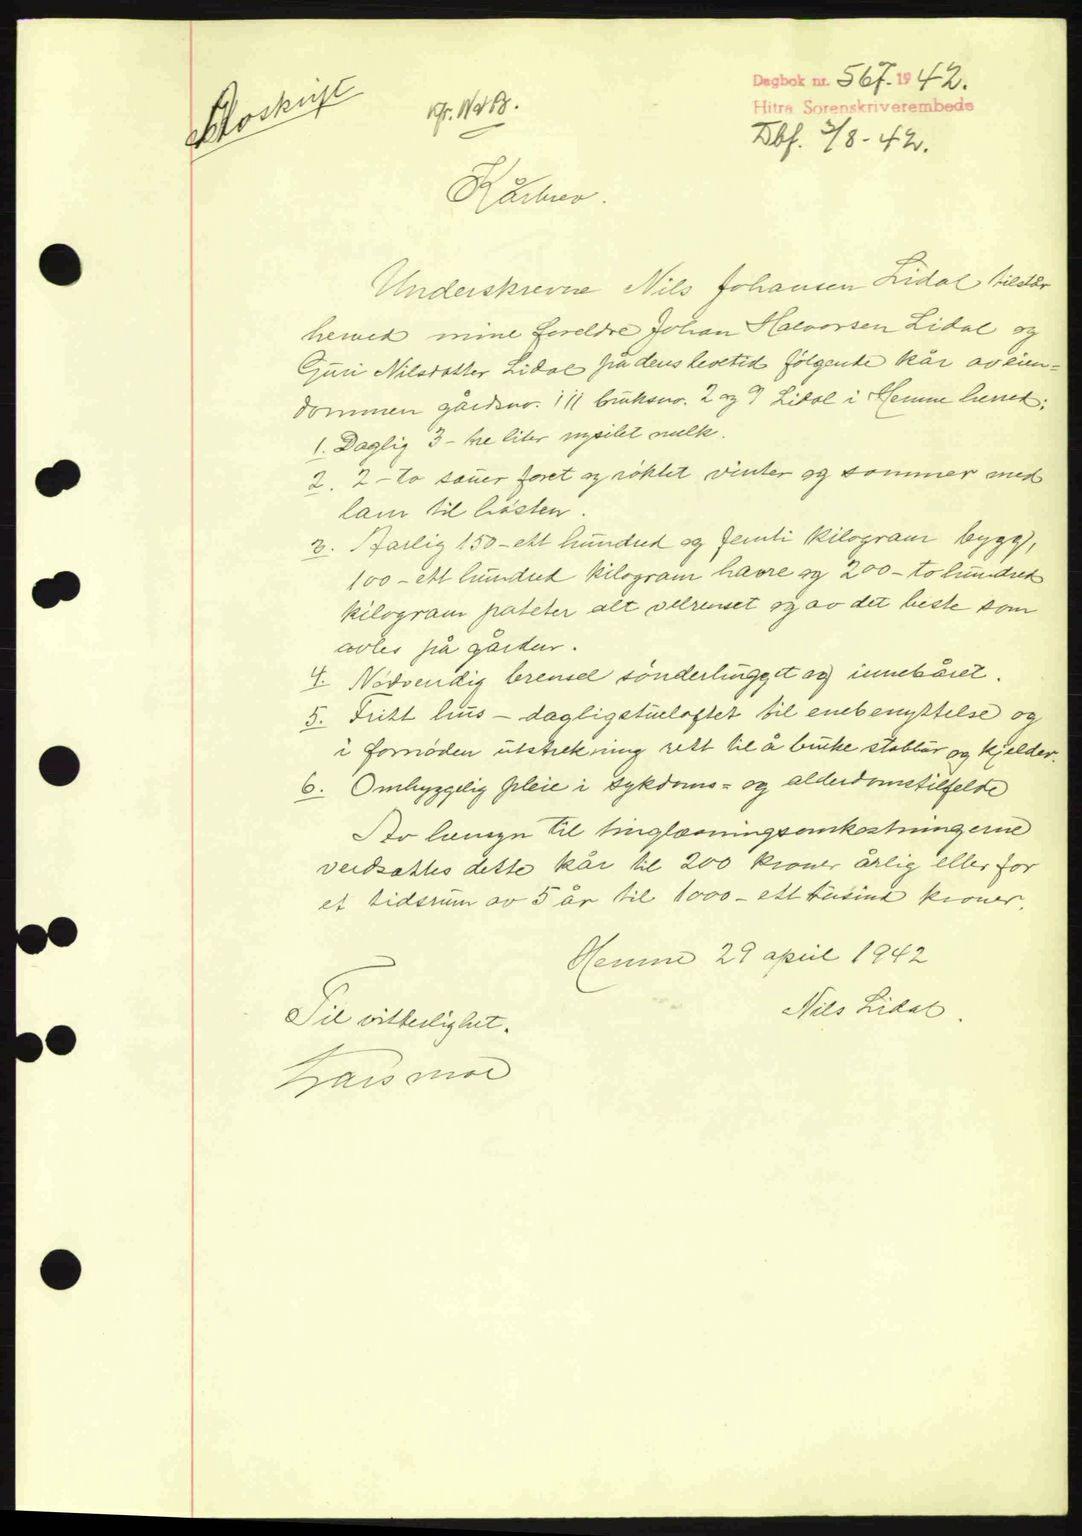 Avskrift
Dagbok nr. 567. 1942.
Hitra Sorenskriverembede
Dbf. 3/8-42.
Kårbrev.
Underskrevne Nils Johansen Lidal tilstår
herved mine foreldre Johan Halvorsen Lidal og
Guri Nilsdatter Lidal på deres levetid følgende kår av eien=
dommen gårdsnr. 111 bruksnr. 2 og 9 Lidal i Hemne herred:
1. Daglig 3 - tre liter nysilet melk.
2. 2 - to sauer foret og røktet vinter og sommer med
lam til høsten.
3. Aarlig 150 - ett hundred og femti kilogram bygg,
100 - ett hundred kilogram havre og 200 - to hundred
kilogram poteter alt velrenset og av det beste som
avles på gården.
4. Nødvendig brensel sønderhugget og innebåret.
5. Fritt hus - dagligstueloftet til enebenyttelse og
i fornøden utstrekning rett til å bruke stabbur og kjelder.
6. Omhyggelig pleie i sykdoms= og alderdomstilfelde
Av hensyn til tinglæsningsomkostningerne
verdsættes dette kår til 200 kroner årlig eller for
et tidsrum av 5 år til 1000 - ett tusind kroner.
Hemne 29 april 1942
Nils Lidal.
Til vitterlighet.
Lars Moe